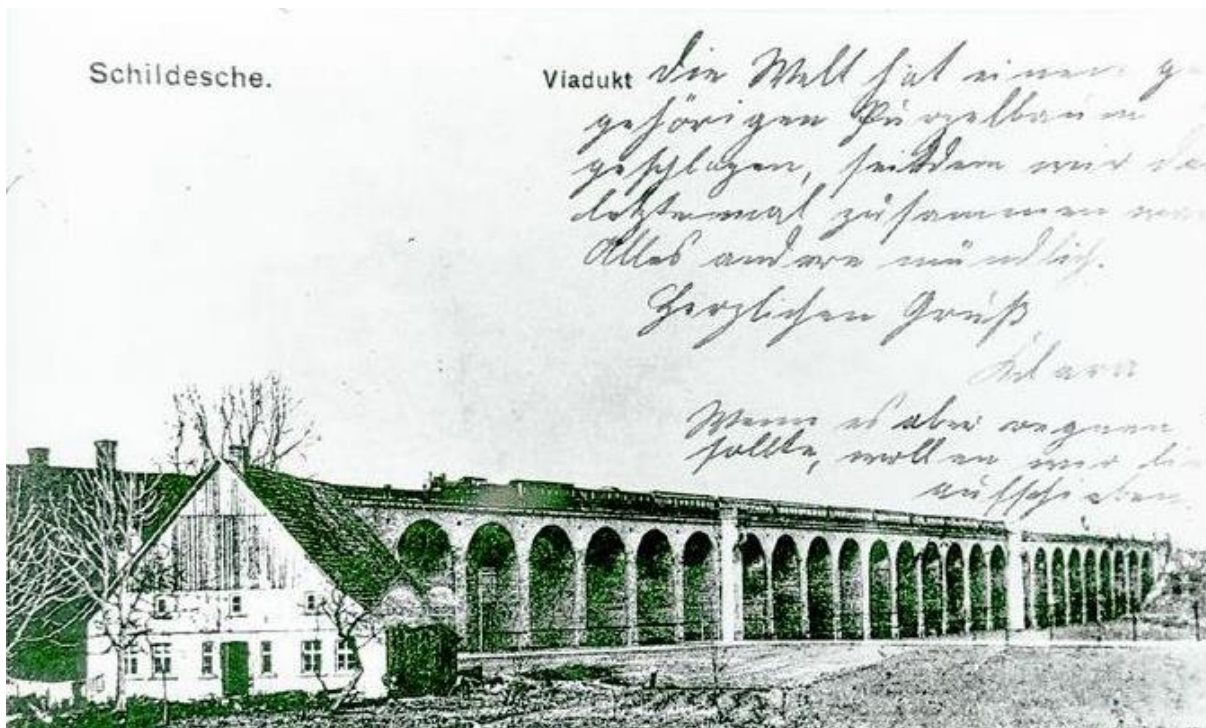 Schildesche.
Viadukt
Die Welt hat einen
gehörigen Purzelbaum
geschlagen, seitdem wir
letztemal zusammen
Alles andere mündlich.
Herzlichen Gruß
Wenn es aber regnen
sollte, wollen wir die
aufschieben.